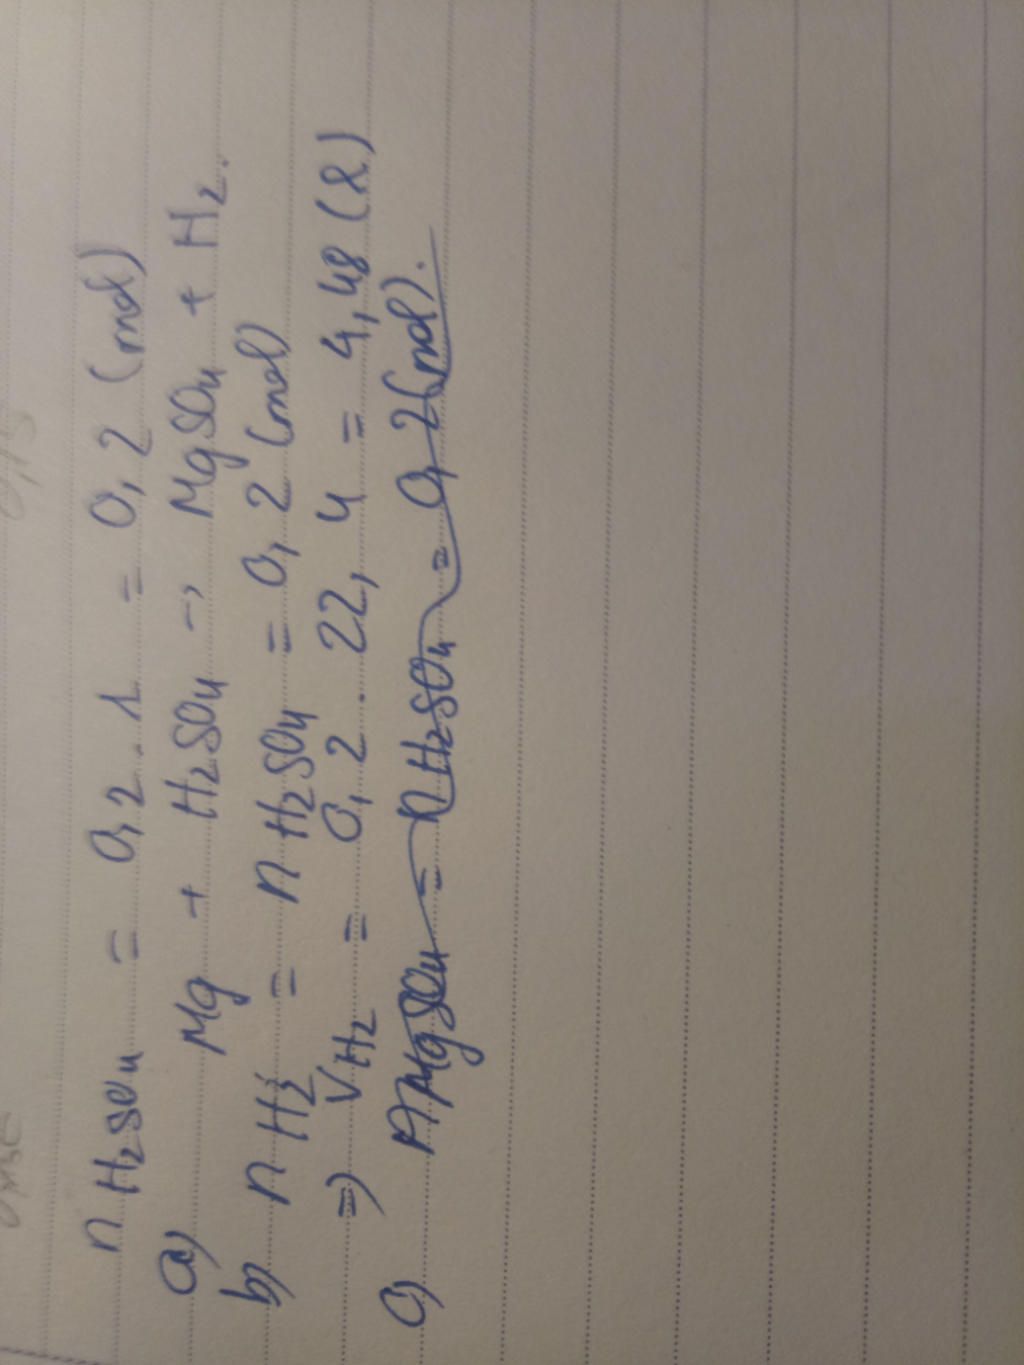 n H₂SO₄ = 0,2 . 1 = 0,2 (mol)
a) Mg + H₂SO₄ → MgSO₄ + H₂.
b) n H₂ = n H₂SO₄ = 0,2 (mol)
⇒ V H₂ = 0,2 . 22,4 = 4,48 (l)
c) MgSO₄ = n H₂SO₄ = 0,2 (mol).